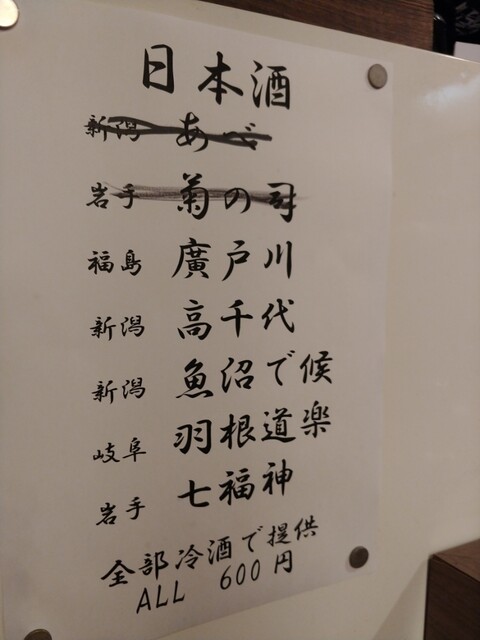 日本酒
新潟 あべ
岩手 菊の司
福島 廣戸川
新潟 高千代
新潟 魚沼で候
岐阜 羽根道楽
岩手 七福神
全部冷酒で提供
ALL 600円